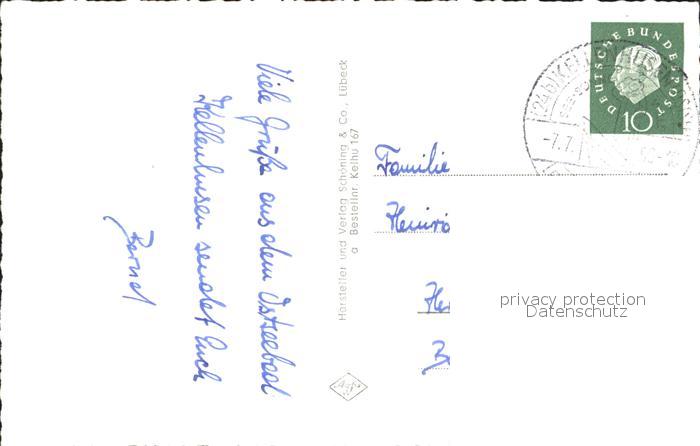 Viele Grüße aus dem Ostseebad
Kellenhusen sendet Euch
Bernd
Hersteller und Verlag Schöning & Co., Lübeck
a Bestellnr. Kelhu 167
Agfa
Familie
Heinric
He
DEUTSCHE BUNDESPOST
10
(24b) KELLENHUSEN
-7.7.
privacy protection
Datenschutz